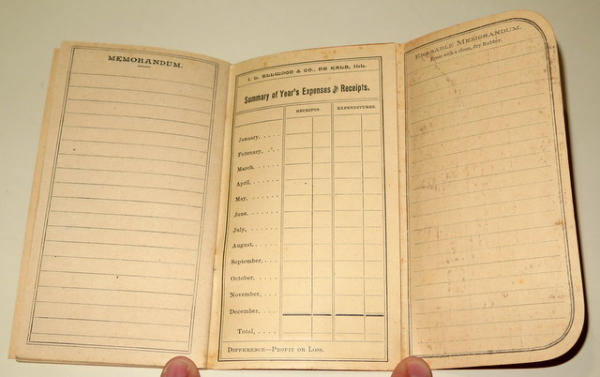 MEMORANDUM.
I. L. ELLWOOD & CO., DE KALB, Ills.
Summary of Year's Expenses and Receipts.
RECEIPTS. EXPENDITURES.
January. . . .
February. . .
March. . . . .
April. . . . . .
May. . . . . .
June. . . . . .
July, . . . . .
August. . . . .
September. . . . .
October. . . . .
November. . . .
December. . . . .
Total, . . . .
DIFFERENCE—PROFIT OR LOSS.
ERASABLE MEMORANDUM.
Erase with a clean, dry Rubber.